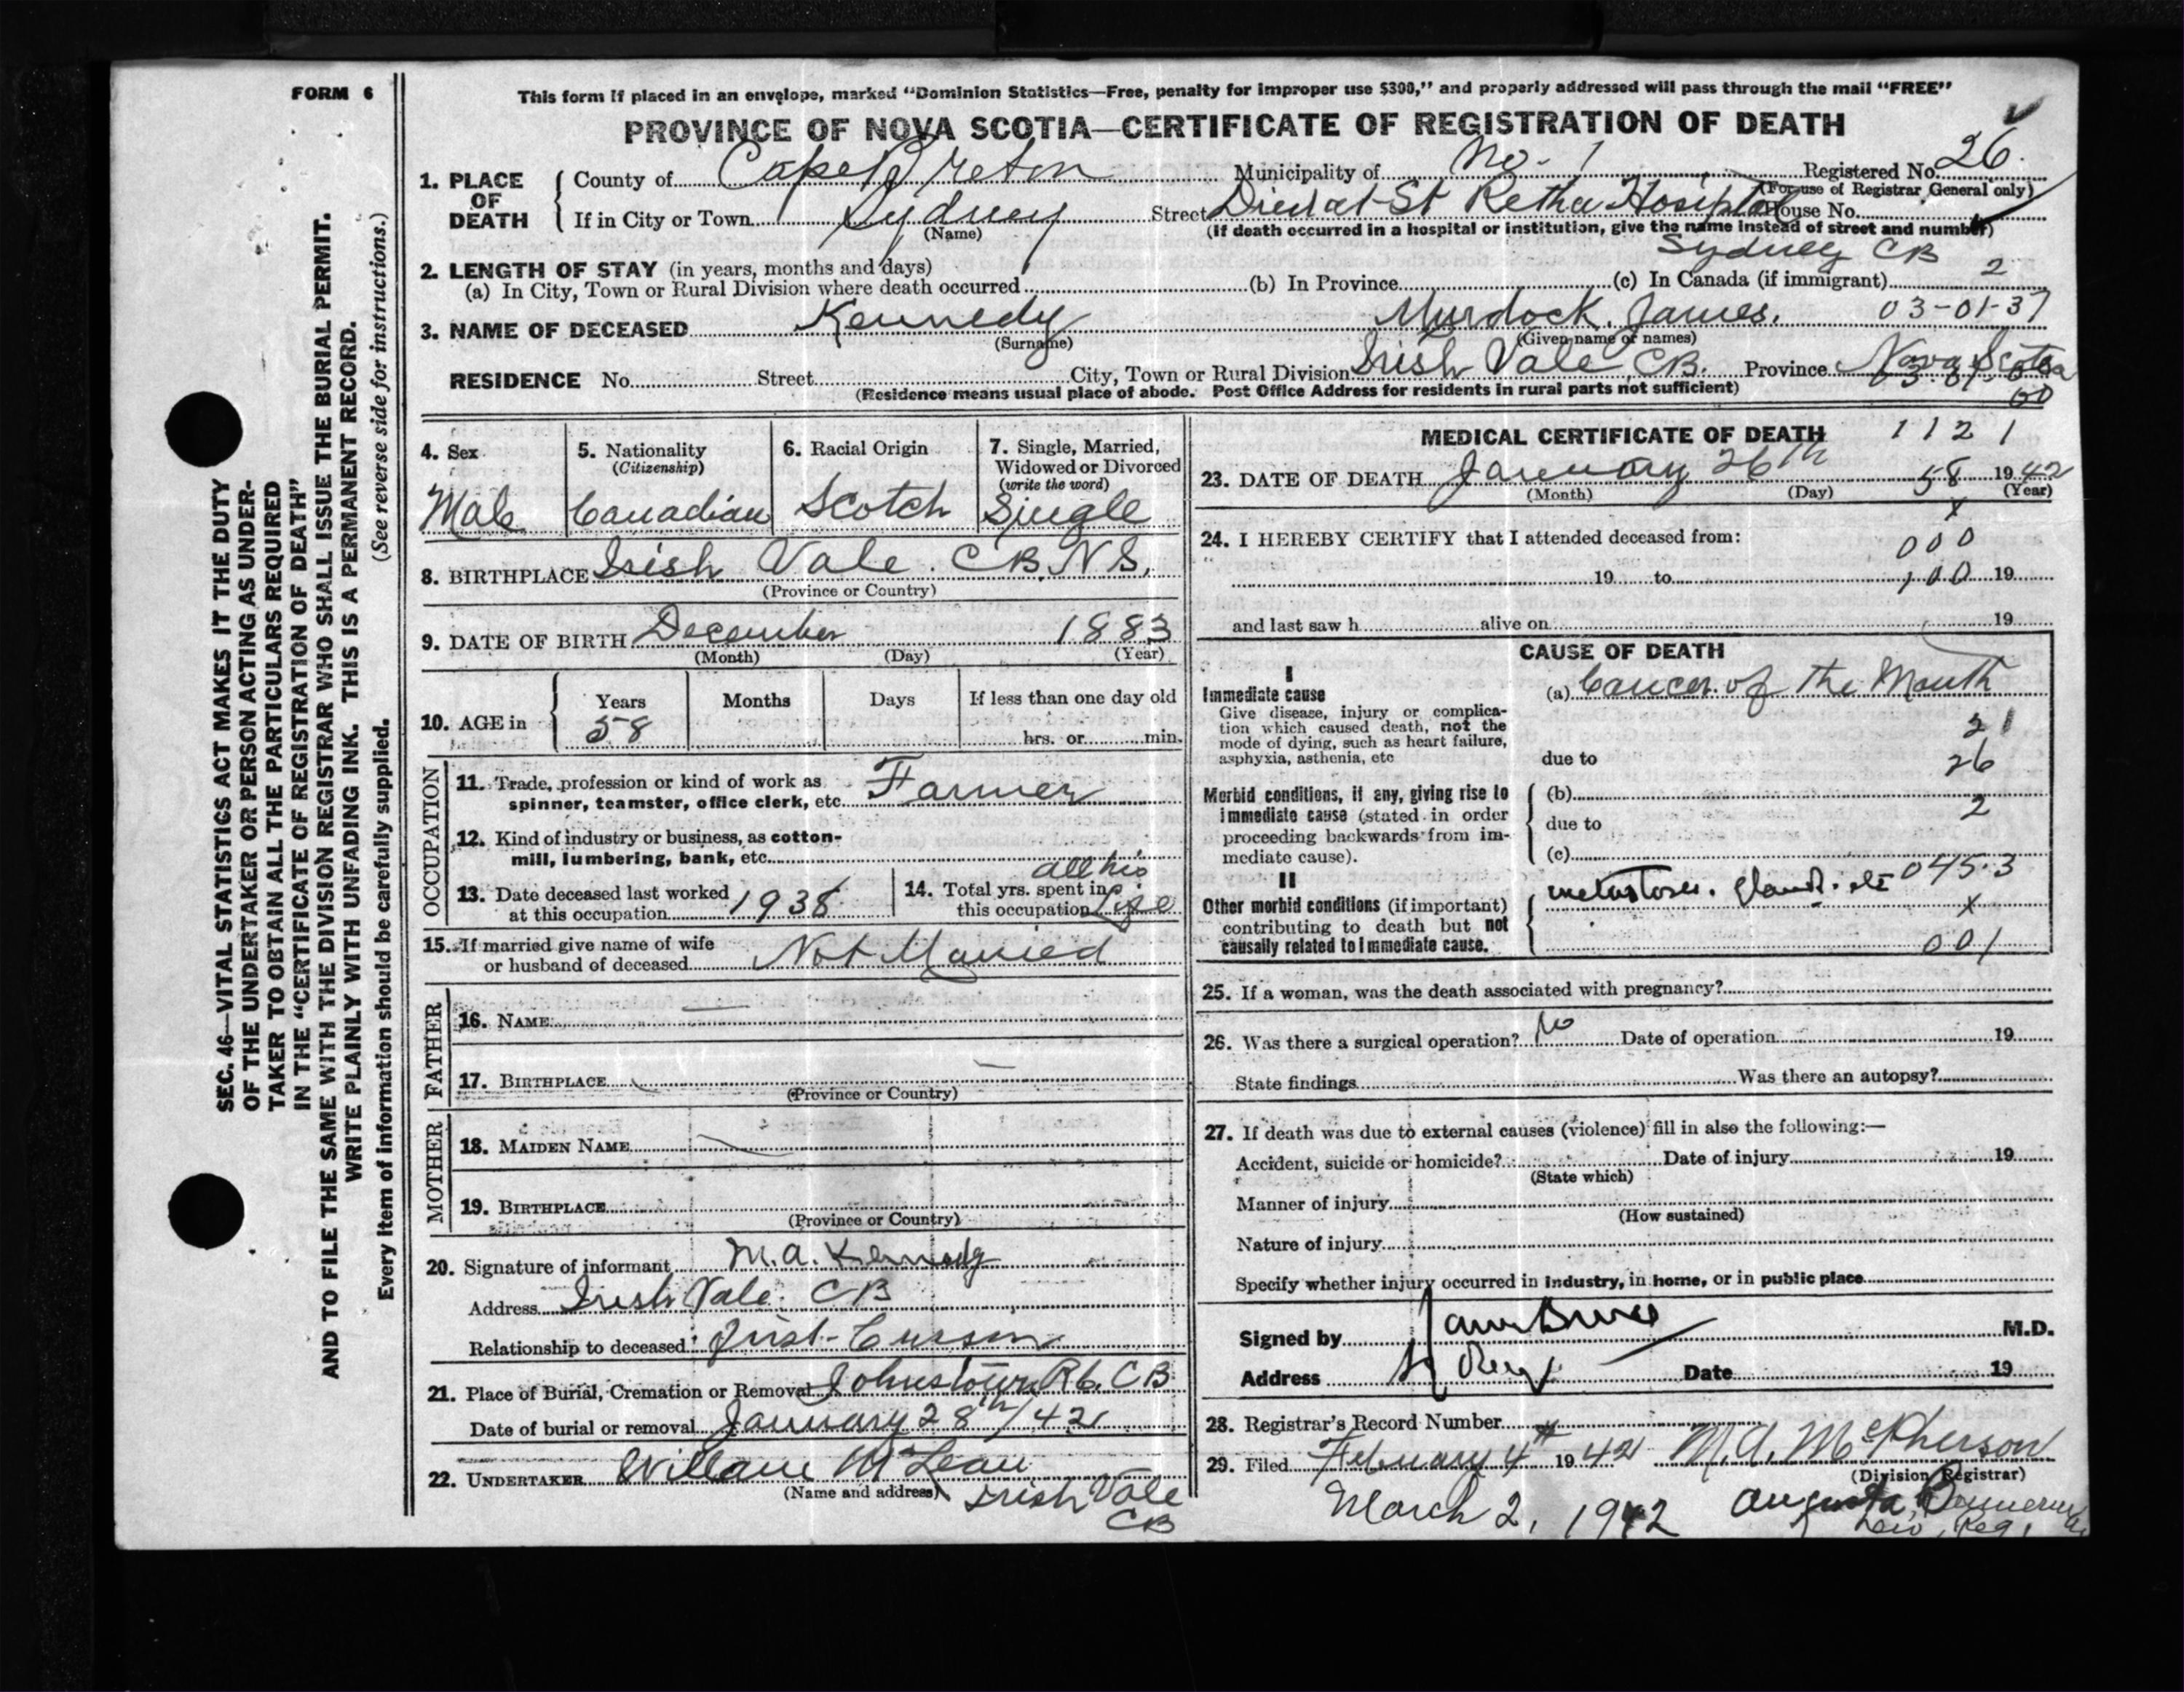 FORM 6
This form if placed in an envelope, marked "Dominion Statistics—Free, penalty for improper use $300," and properly addressed will pass through the mail "FREE"
PROVINCE OF NOVA SCOTIA—CERTIFICATE OF REGISTRATION OF DEATH
1. PLACE OF DEATH
County of Cape Breton Municipality of No. 1 Registered No. 26.
(For use of Registrar General only)
If in City or Town Sydney Street Died at St Retha Hosiptol House No.
(Name) (If death occurred in a hospital or institution, give the name instead of street and number)
Sydney CB
2. LENGTH OF STAY (in years, months and days)
(a) In City, Town or Rural Division where death occurred (b) In Province (c) In Canada (if immigrant) 2
3. NAME OF DECEASED Kennedy Murdock, James. 03-01-37
(Surname) (Given name or names)
RESIDENCE No. Street City, Town or Rural Division Irish Vale CB. Province Nova Scotia
(Residence means usual place of abode. Post Office Address for residents in rural parts not sufficient)
4. Sex
Male
5. Nationality
(Citizenship)
Canadian
6. Racial Origin
Scotch
7. Single, Married,
Widowed or Divorced
(write the word)
Single
8. BIRTHPLACE Irish Vale. CB. N S.
(Province or Country)
9. DATE OF BIRTH December 1883
(Month) (Day) (Year)
10. AGE in
Years Months Days If less than one day old
58 hrs. or min.
OCCUPATION
11. Trade, profession or kind of work as
spinner, teamster, office clerk, etc. Farmer
12. Kind of industry or business, as cotton-
mill, lumbering, bank, etc.
13. Date deceased last worked
at this occupation 1938
14. Total yrs. spent in
this occupation all his Life
15. If married give name of wife
or husband of deceased Not Married
FATHER
16. NAME
17. BIRTHPLACE
(Province or Country)
MOTHER
18. MAIDEN NAME
19. BIRTHPLACE
(Province or Country)
20. Signature of informant M. A. Kennedy
Address Irish Vale. CB
Relationship to deceased First-Cussin
21. Place of Burial, Cremation or Removal Johnstown Rb. CB
Date of burial or removal January 28th/42
22. UNDERTAKER William McLean
(Name and address) Irish Vale
CB
MEDICAL CERTIFICATE OF DEATH 1121
23. DATE OF DEATH January 26th 58 1942
(Month) (Day) (Year)
x
24. I HEREBY CERTIFY that I attended deceased from:
000
19 to 100 19
and last saw h alive on 19
CAUSE OF DEATH
I
Immediate cause
Give disease, injury or complica-
tion which caused death, not the
mode of dying, such as heart failure,
asphyxia, asthenia, etc
(a) Cancer of the Mouth
21
due to 26
Morbid conditions, if any, giving rise to
immediate cause (stated in order
proceeding backwards from im-
mediate cause).
(b)
due to 2
(c)
II
Other morbid conditions (if important)
contributing to death but not
causally related to immediate cause.
metastoses. gland. etc 045.3
x
001
25. If a woman, was the death associated with pregnancy?
26. Was there a surgical operation? No Date of operation 19
State findings Was there an autopsy?
27. If death was due to external causes (violence) fill in also the following:—
Accident, suicide or homicide? Date of injury 19
(State which)
Manner of injury
(How sustained)
Nature of injury
Specify whether injury occurred in industry, in home, or in public place
Signed by M.D.
Address Date 19
28. Registrar's Record Number
29. Filed February 4th 1942 M. A. McPherson
(Division Registrar)
March 2, 1942 Augusta
SEC. 46—VITAL STATISTICS ACT MAKES IT THE DUTY
OF THE UNDERTAKER OR PERSON ACTING AS UNDER-
TAKER TO OBTAIN ALL THE PARTICULARS REQUIRED
IN THE "CERTIFICATE OF REGISTRATION OF DEATH"
AND TO FILE THE SAME WITH THE DIVISION REGISTRAR WHO SHALL ISSUE THE BURIAL PERMIT.
WRITE PLAINLY WITH UNFADING INK. THIS IS A PERMANENT RECORD.
(See reverse side for instructions.)
Every item of information should be carefully supplied.